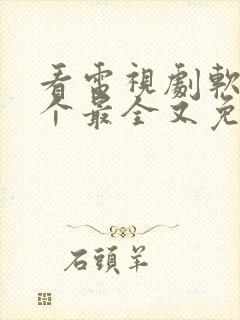 看電視劇軟
个最全又免
石頭羊